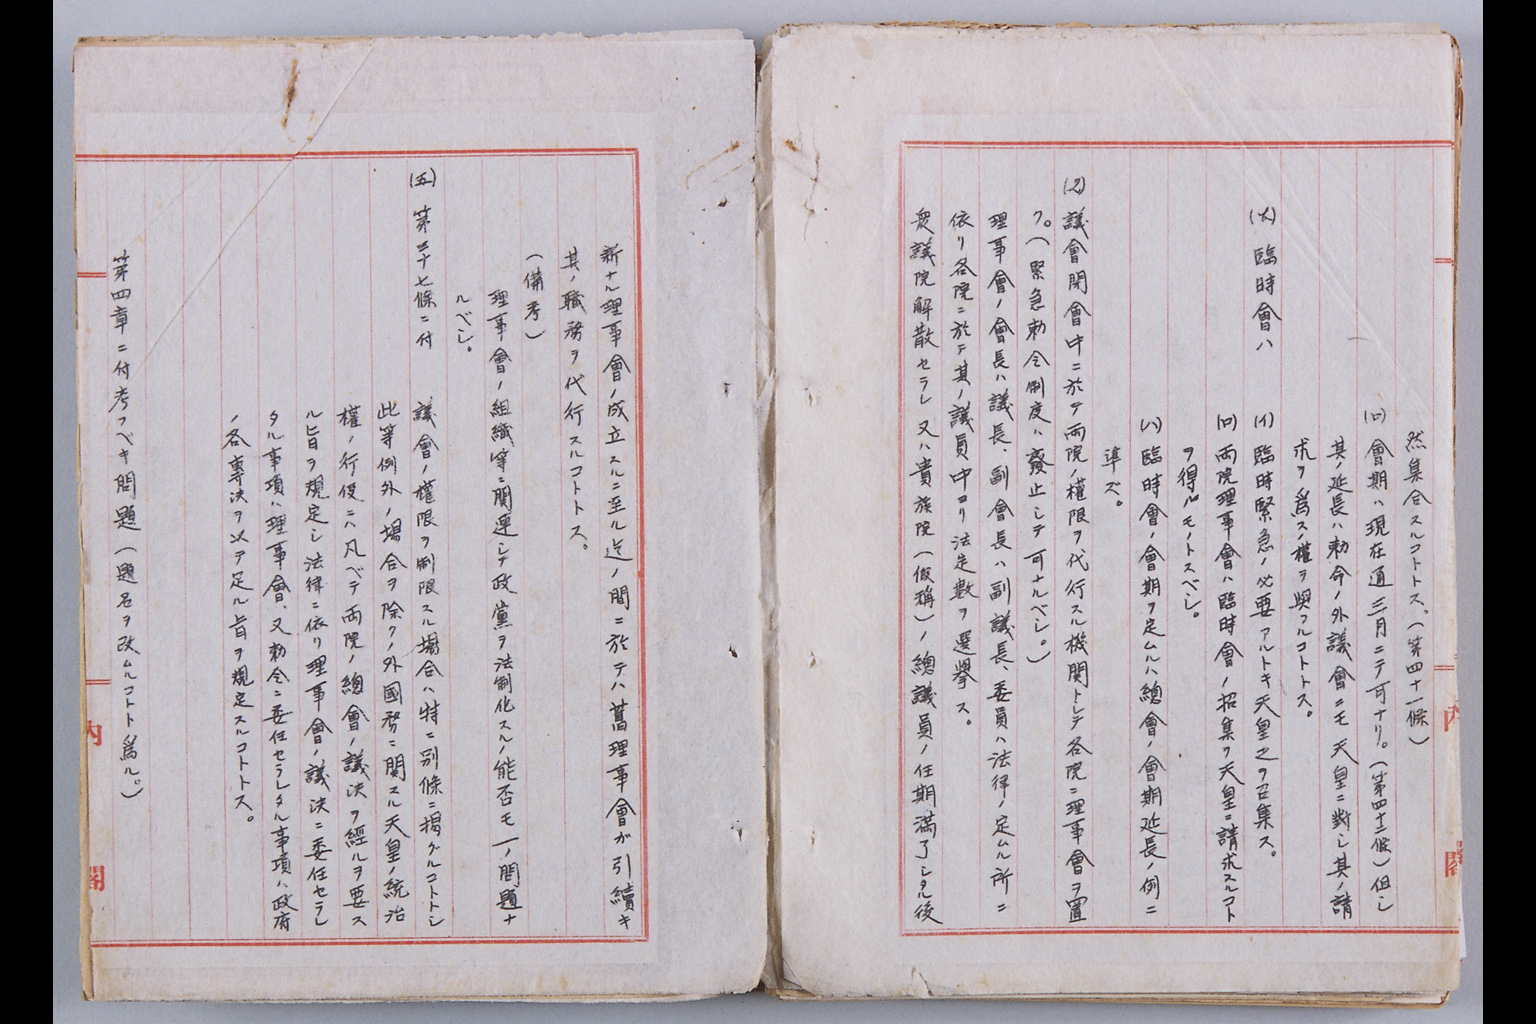 然集合スルコトトス、(第四十一條)
(ロ) 會期ハ現在通三月ニテ可ナリ。(第四十二條)但シ
其ノ延長ハ勅命ノ外議會ニモ天皇ニ對シ其ノ請
求ヲ爲スノ權ヲ與フルコトトス。
(六) 臨時會ハ
(イ) 臨時緊急ノ必要アルトキ天皇之ヲ召集ス。
(ロ) 両院理事會ハ臨時會ノ招集ヲ天皇ニ請求スルコト
ヲ得ルモノトスベシ。
(ハ) 臨時會ノ會期ヲ定ムルハ總會ノ會期延長ノ例ニ
準ズ。
(2) 議會閉會中ニ於テ両院ノ權限ヲ代行スル機関トシテ各院ニ理事會ヲ置
ク。(緊急勅令制度ハ廢止シテ可ナルベシ。)
理事會ノ會長ハ議長、副會長ハ副議長、委員ハ法律ノ定ムル所ニ
依リ各院ニ於テ其ノ議員中ヨリ法定数ヲ選擧ス。
衆議院解散セラレ又ハ貴族院(假稱)ノ總議員ノ任期満了シタル後
新ナル理事會ノ成立スルニ至ル迄ノ間ニ於テハ舊理事會ガ引續キ
其ノ職務ヲ代行スルコトトス。
(備考)
理事會ノ組織等ニ関連シテ政黨ヲ法制化スルノ能否モ一ノ問題ナ
ルベシ。
(五) 第三十七條ニ付
議會ノ權限ヲ制限スル場合ハ特ニ別條ニ掲グルコトトシ
此等例外ノ場合ヲ除クノ外國務ニ関スル天皇ノ統治
權ノ行使ニハ凡ベテ両院ノ總會ノ議決ヲ經ルヲ要ス
ル旨ヲ規定シ法律ニ依リ理事會ノ議決ニ委任セラレ
タル事項ハ理事會、又勅令ニ委任セラレタル事項ハ政府
ノ各専決ヲ以テ足ル旨ヲ規定スルコトトス。
第四章ニ付考フベキ問題(題名ヲ改ムルコトト爲ル。)
内閣
内閣